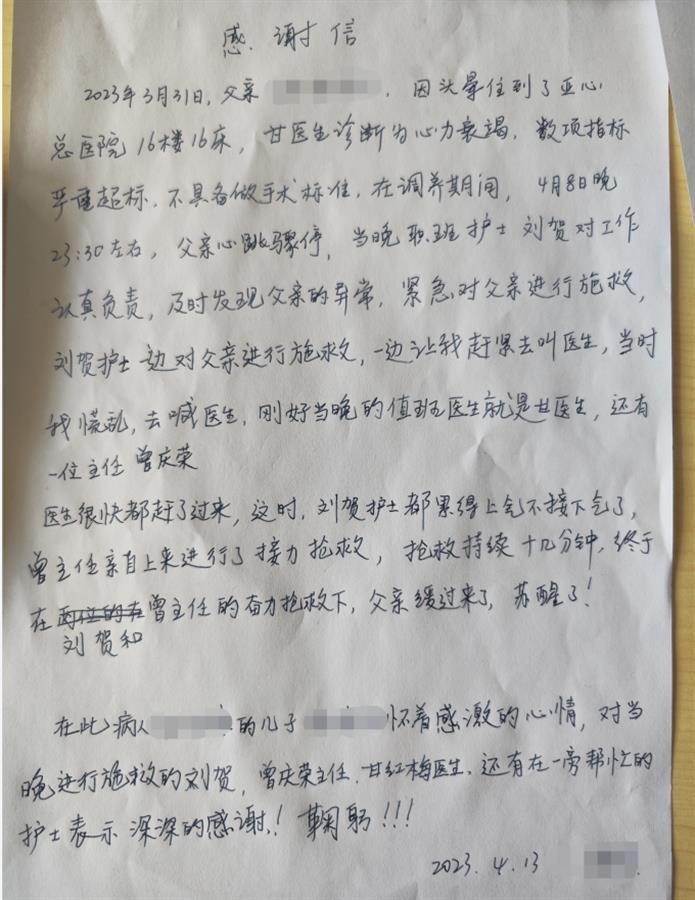 感谢信
2023年3月31日，父亲 ，因头晕住到了亚心
总医院16楼16床，甘医生诊断为心力衰竭，数项指标
严重超标，不具备做手术标准，在调养期间，4月8日晚
23:30左右，父亲心跳骤停，当晚职班护士刘贺对工作
认真负责，及时发现父亲的异常，紧急对父亲进行施救，
刘贺护士一边对父亲进行施救，一边让我赶紧去叫医生，当时
我慌乱，去喊医生，刚好当晚的值班医生就是甘医生，还有
一位主任曾庆荣
医生很快都赶了过来，这时，刘贺护士都累得上气不接下气了，
曾主任亲自上来进行了接力抢救，抢救持续十几分钟，终于
在曾主任的奋力抢救下，父亲缓过来了，苏醒了！
刘贺和
在此病人 的儿子 怀着感激的心情，对当
晚进行施救的刘贺，曾庆荣主任，甘红梅医生，还有在一旁帮忙的
护士表示深深的感谢！鞠躬！！！
2023.4.13